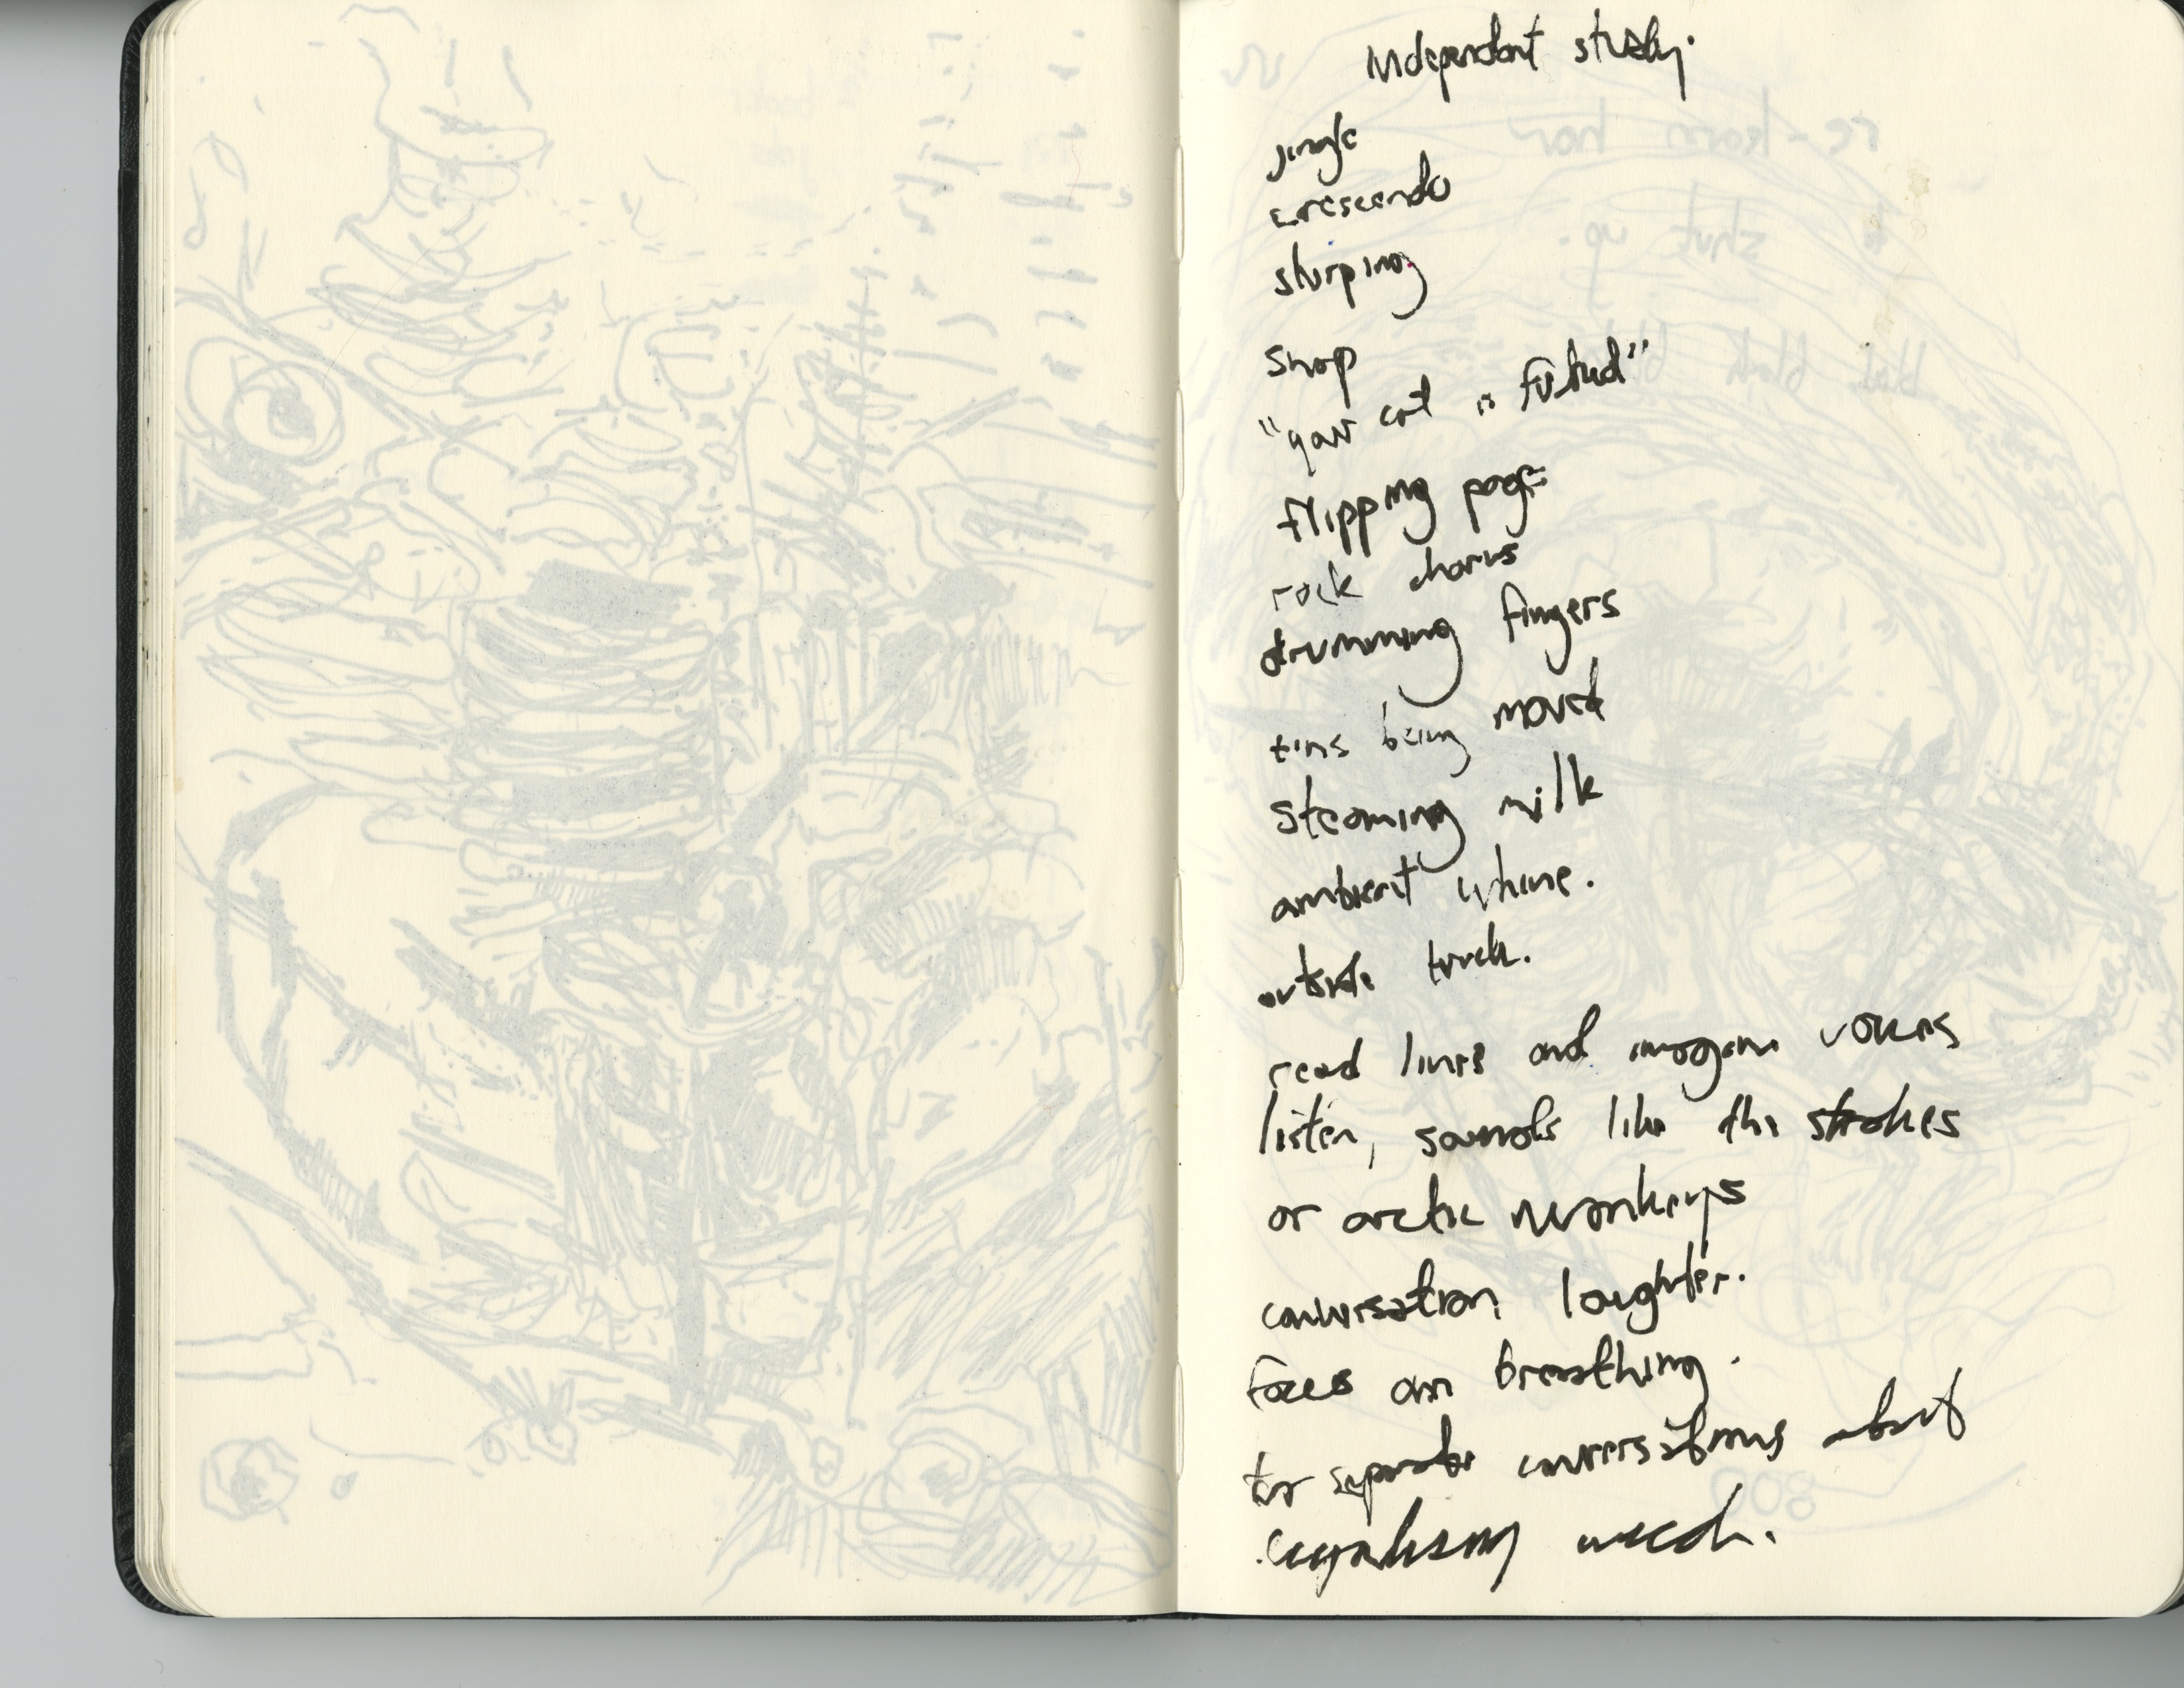 Independent study.
jingle
crescendo
slurping
snap
"your cat is fucked"
flipping page
rock chorus
drumming fingers
tins being moved
steaming milk
ambient whine.
outside truck.
read lines and imagine voices
listen, sounds like the strokes
or arctic monkeys
conversation laughter.
focus on breathing.
separate conversations about
weed.
re-learn how
to shut up.
blah blah blah